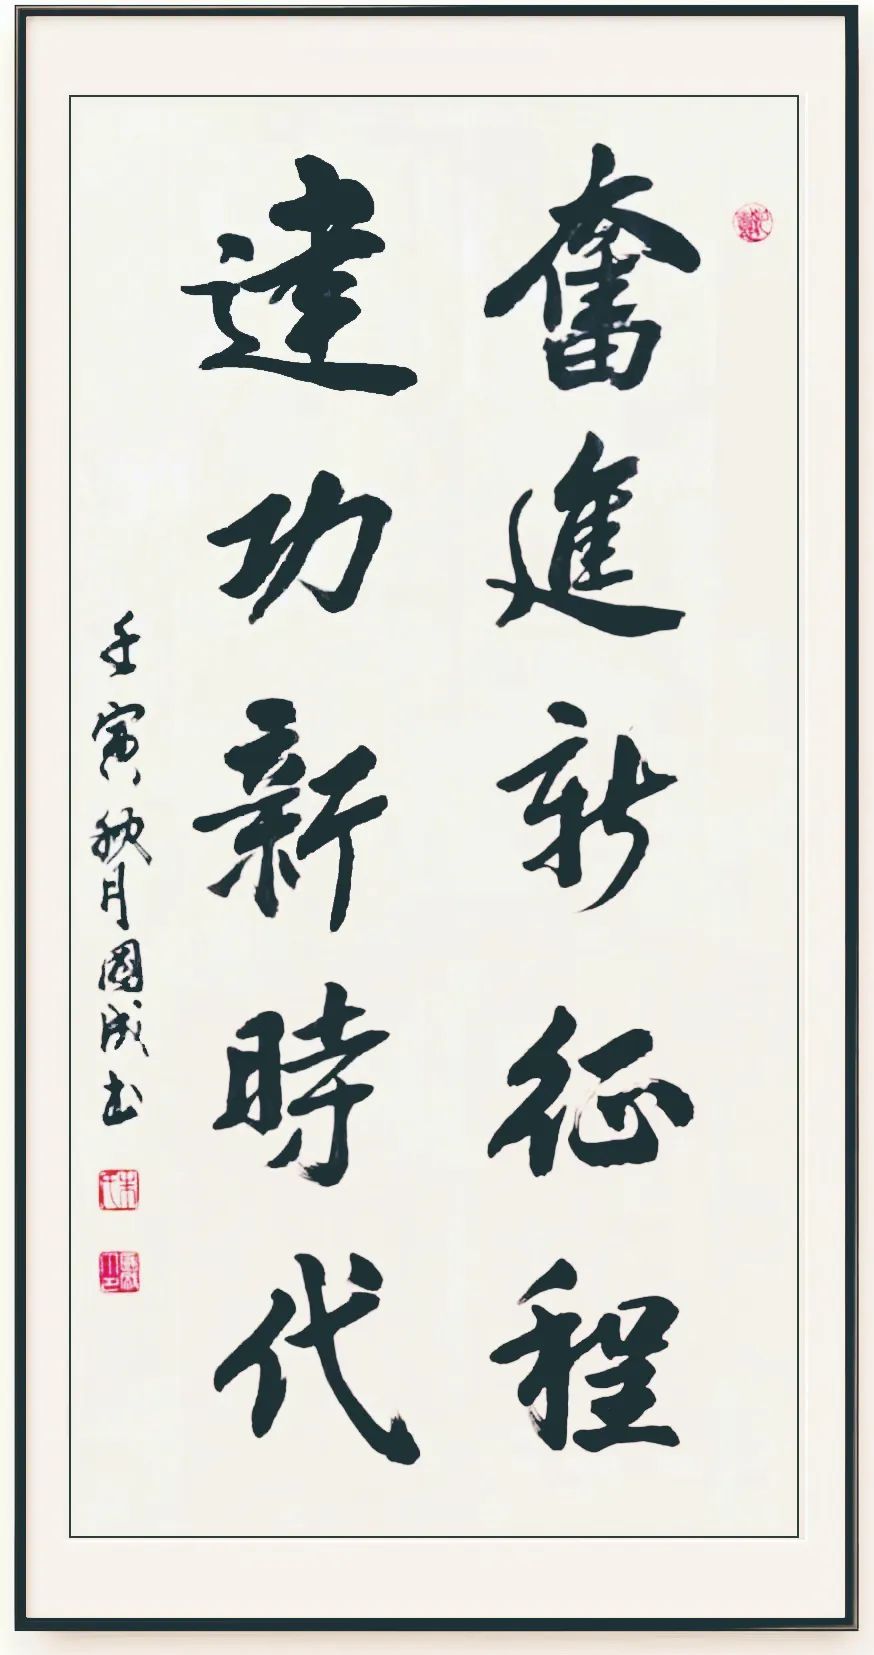 奮進新征程
建功新時代
壬寅秋月國成書